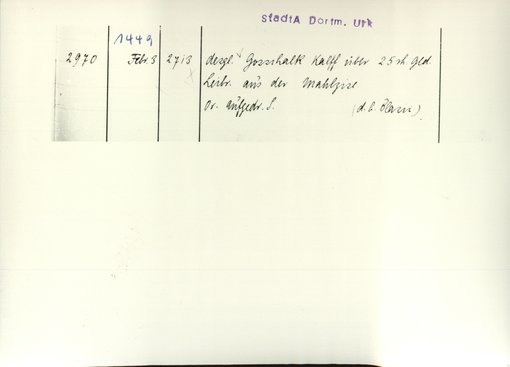 StadtA Dortm. Urk
1449
2970 Febr. 3 2713 desgl. Gosschalk Kalff über 25 rh. Gld.
Leibr. aus der Mahlzise
Or. aufgedr. S. (d. l.